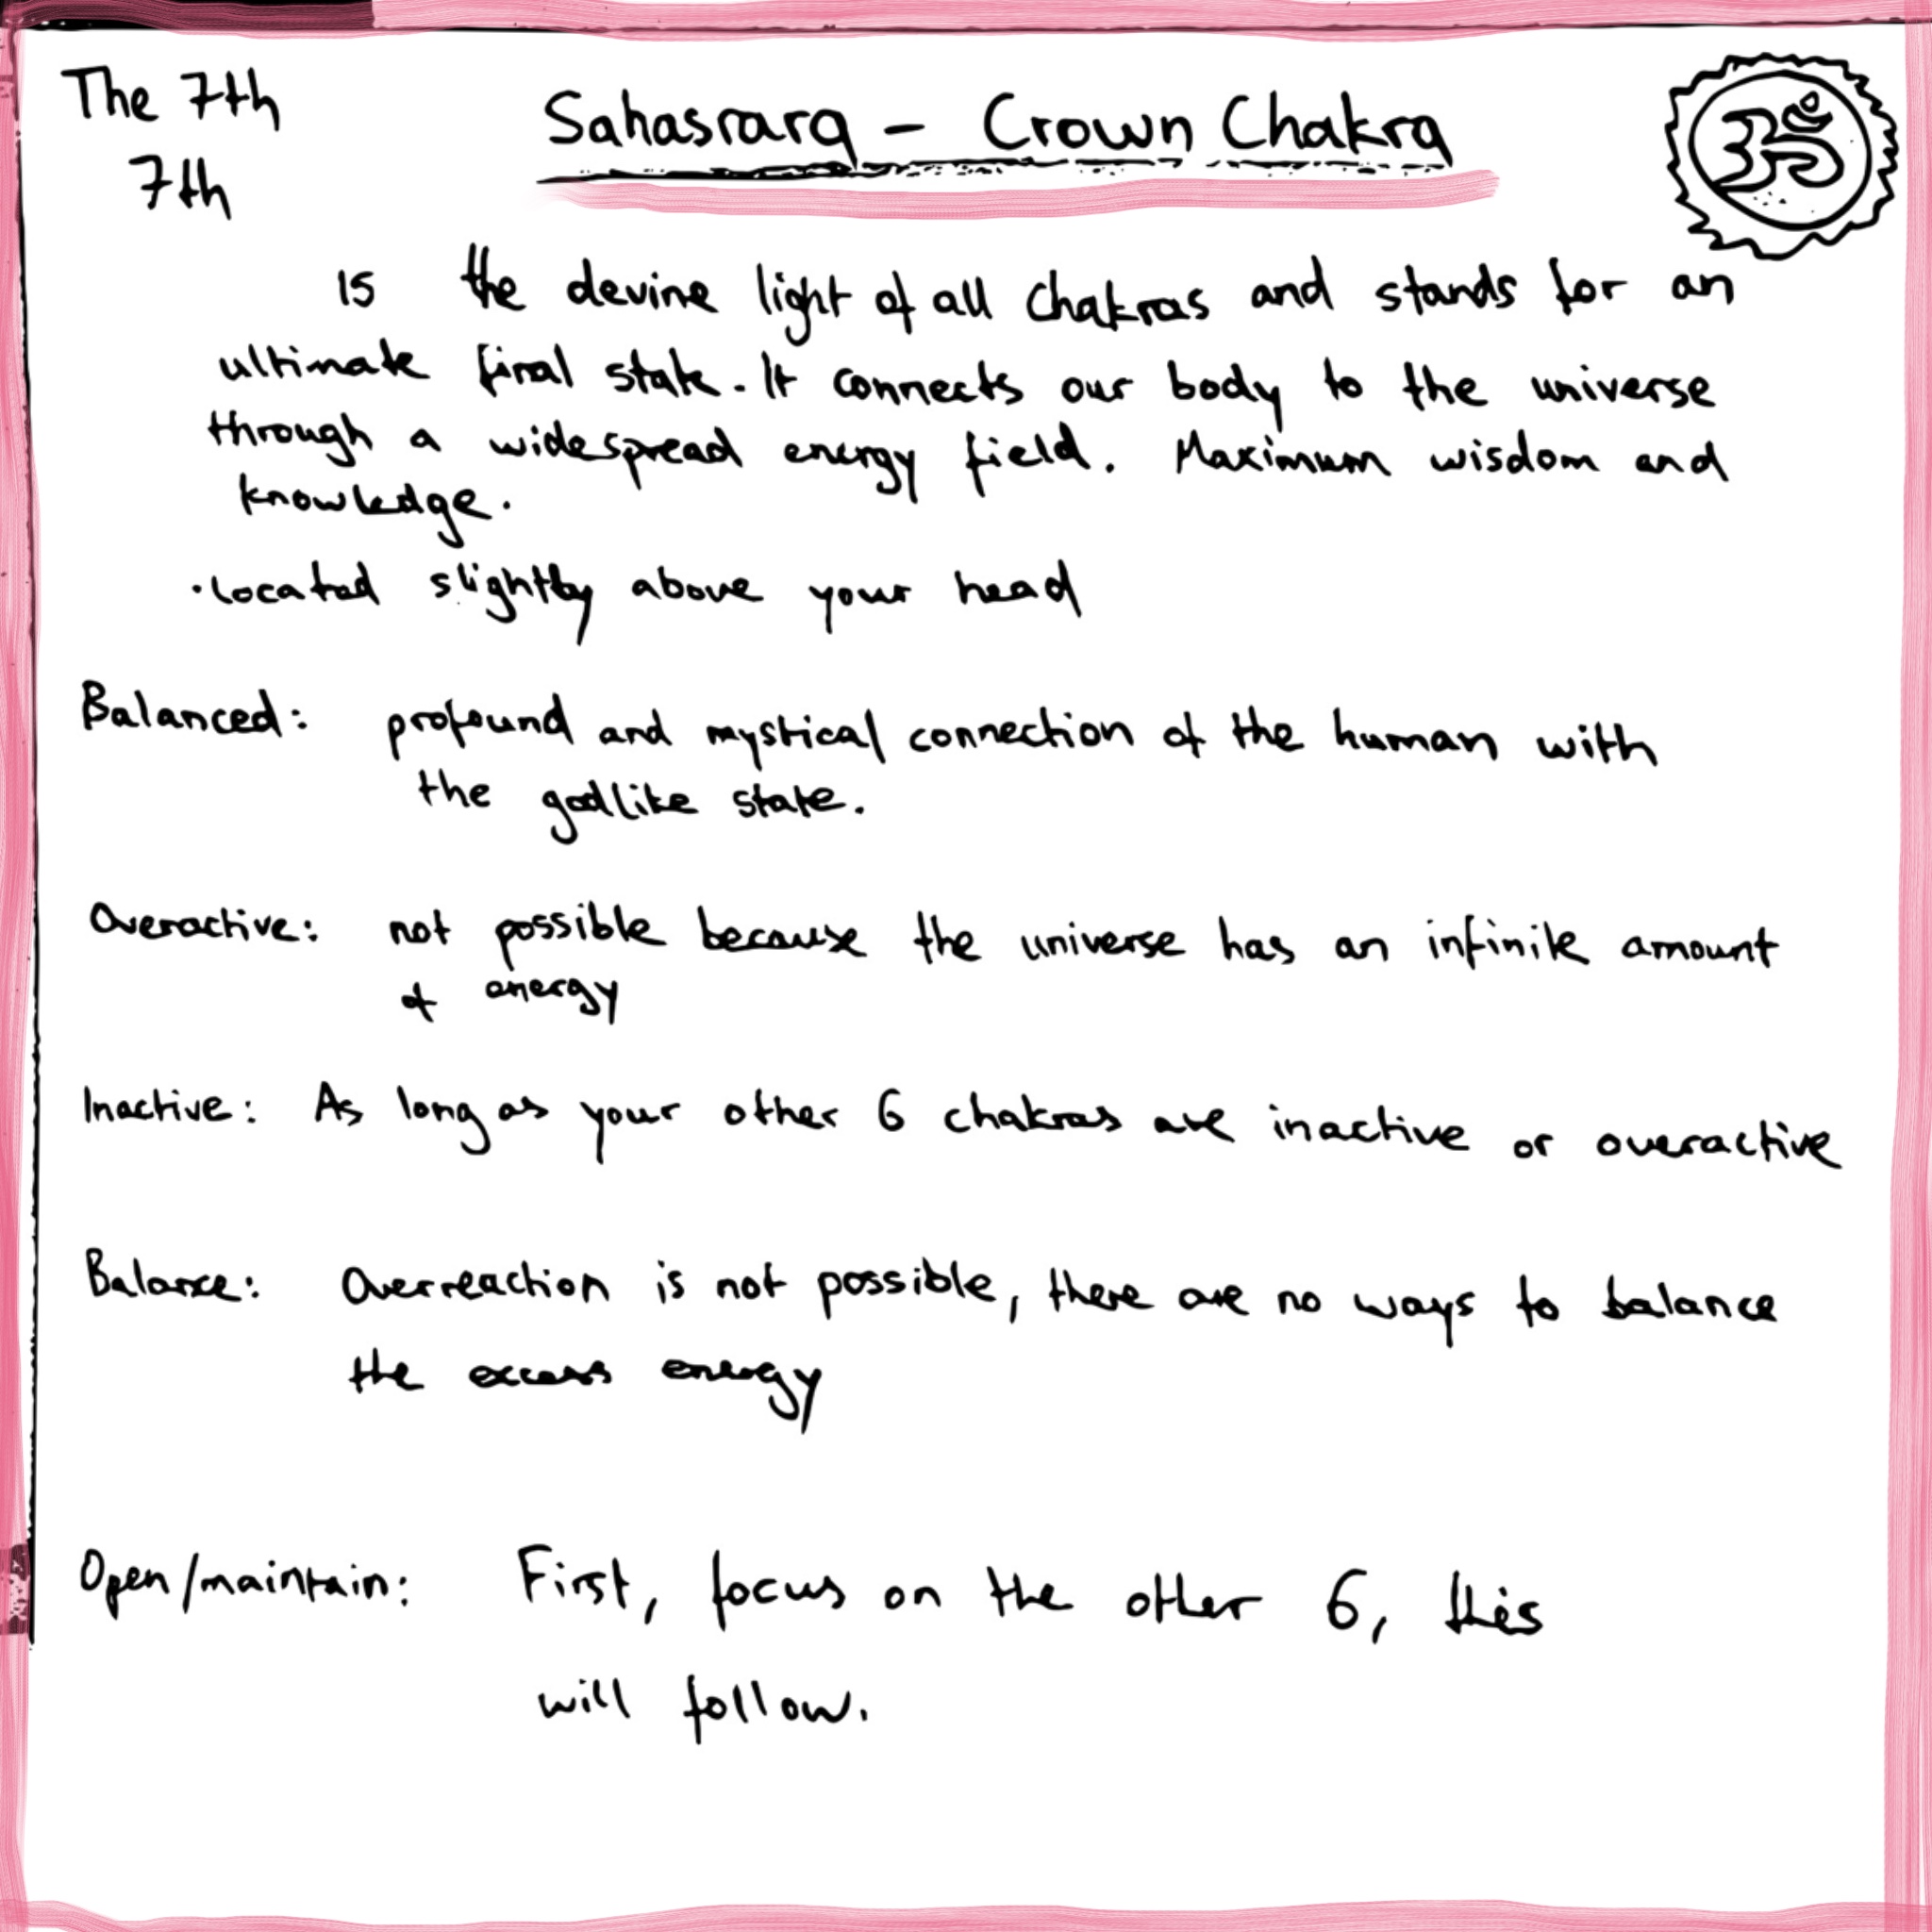 The 7th
7th
Sahasrara - Crown Chakra
ॐ
is the devine light of all chakras and stands for an
ultimate final state. It connects our body to the universe
through a widespread energy field. Maximum wisdom and
knowledge.
• Located slightly above your head
Balanced: profound and mystical connection of the human with
the godlike state.
Overactive: not possible because the universe has an infinite amount
of energy
Inactive: As long as your other 6 chakras are inactive or overactive
Balance: Overreaction is not possible, there are no ways to balance
the excess energy
Open/maintain: First, focus on the other 6, this
will follow.